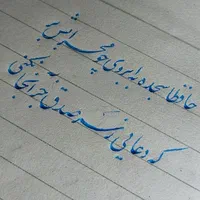 حافظا سجده به ابروی چو محرابش بر
که دعایی ز سر صدق جز آنجا نکنی